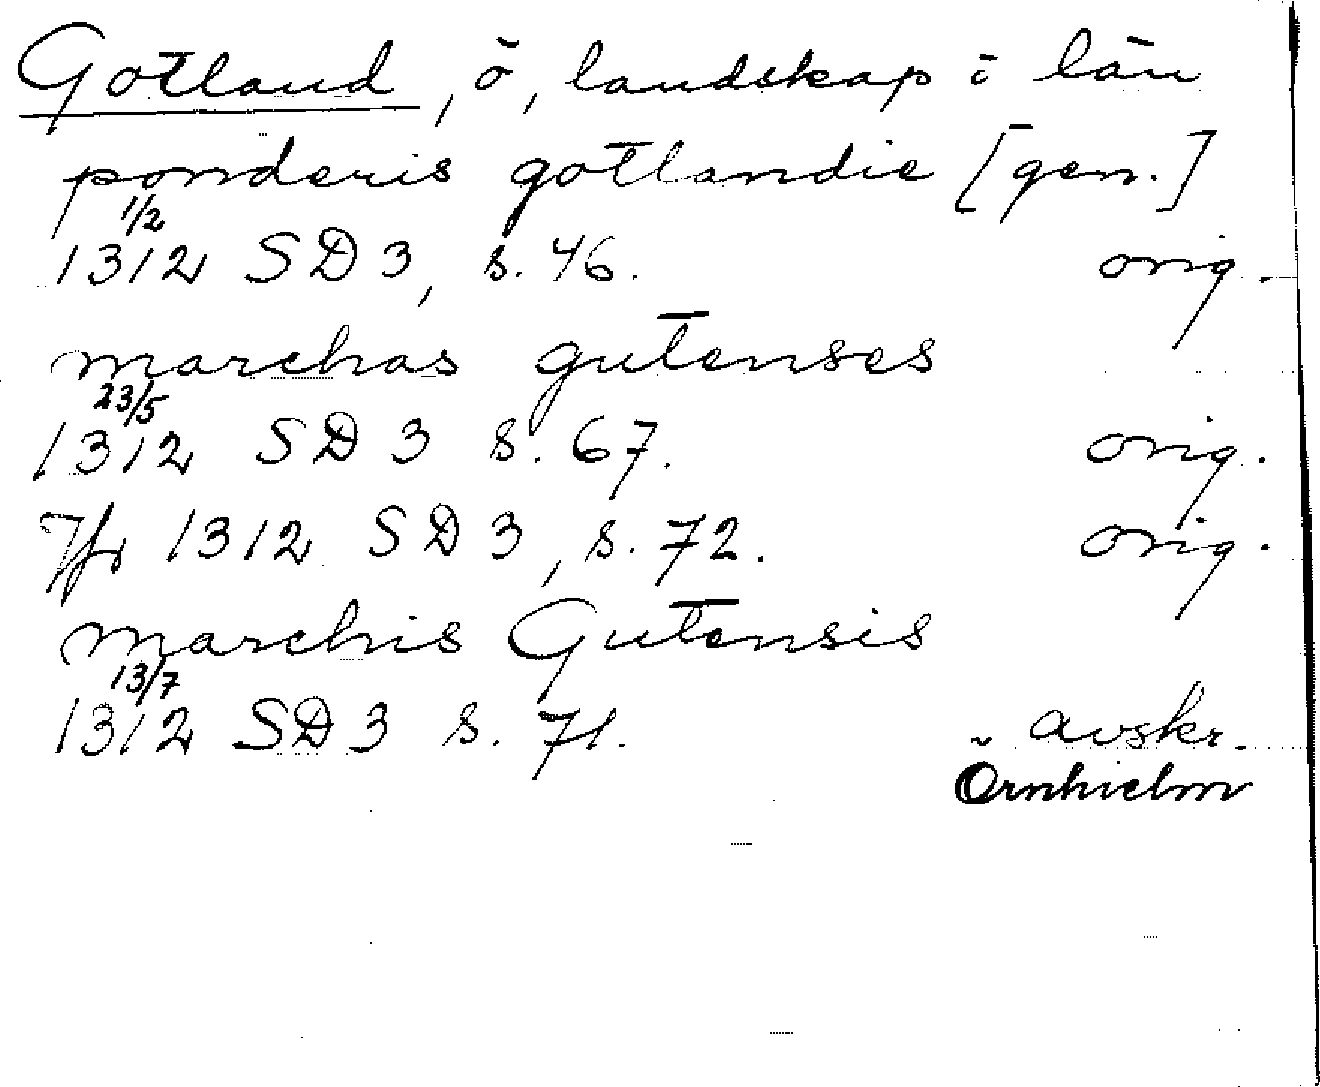 Gotland, ö, landskap i län
ponderis gotlandie [gen.]
1/2
1312 SD 3, s. 46. orig.
marchas gutenses
23/5
1312 SD 3 s. 67. orig.
Jfr 1312 SD 3, s. 72. orig.
marchis Gutensis
13/7
1312 SD 3 s. 71. avskr.
Örnhielm